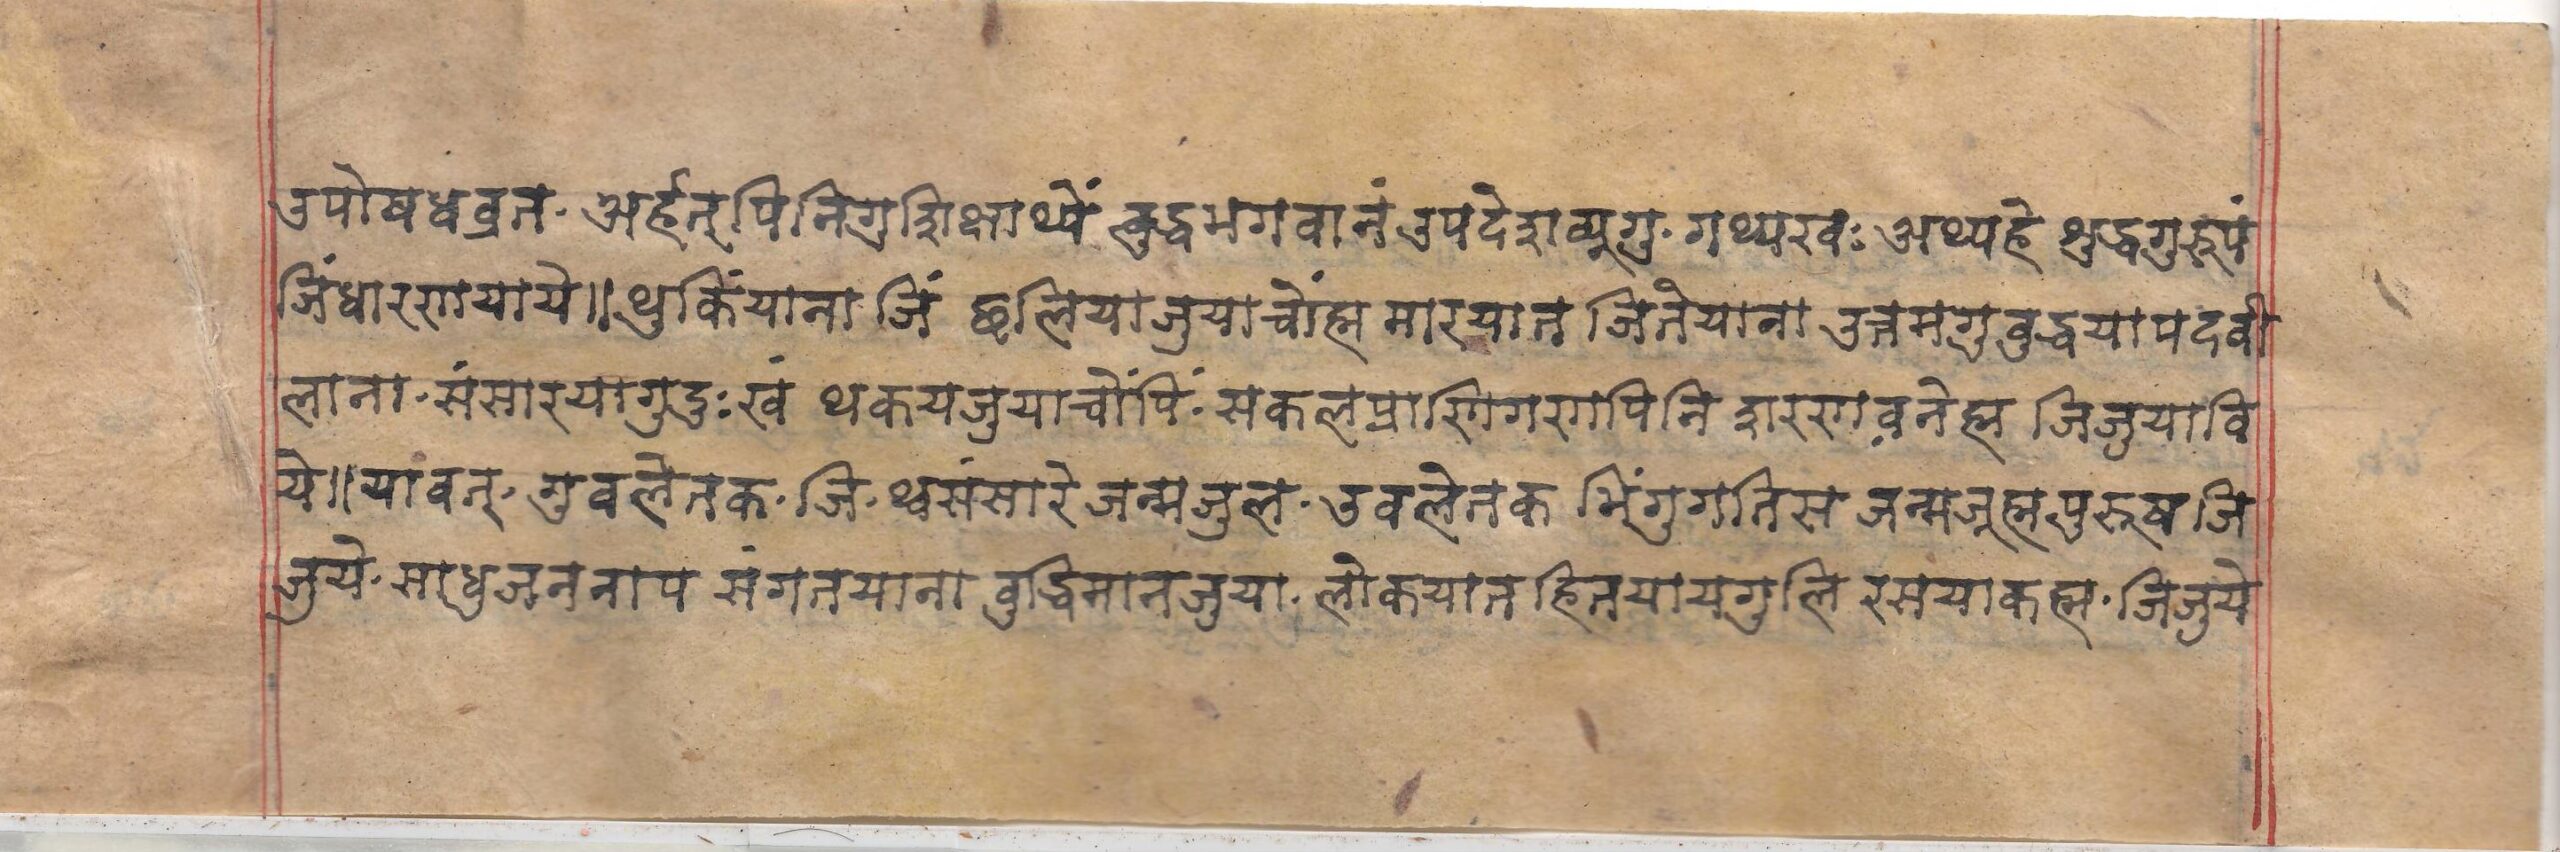 उपोषधव्रत· अर्हत्पिनिगुशिक्षाथ्यें बुद्धभगवानं उपदेशब्यूगु· गथ्यखवः अथ्यहे शुद्धगुरूपं
जिंधारणायाये॥ थुकिंयाना जिं छलियाजुयाचोंह्म मारयात जितेयाना उत्तमगुबुद्धयापदवी
लाना· संसारयागुदुःखं थकयजुयाचोंपिं· सकलप्राणिगणपिनि शरणवनेह्म जिजुयावि
ये॥ यावत्· गुवलेतक· जि· थ्वसंसारे जन्मजुल· उवलेतक भिंगुगतिस जन्मजूह्मपुरूष जि
जुये· साधुजननाप संगतयाना बुद्धिमानजुया· लोकयात हितयायगुलि रसयाकह्म· जिजुये